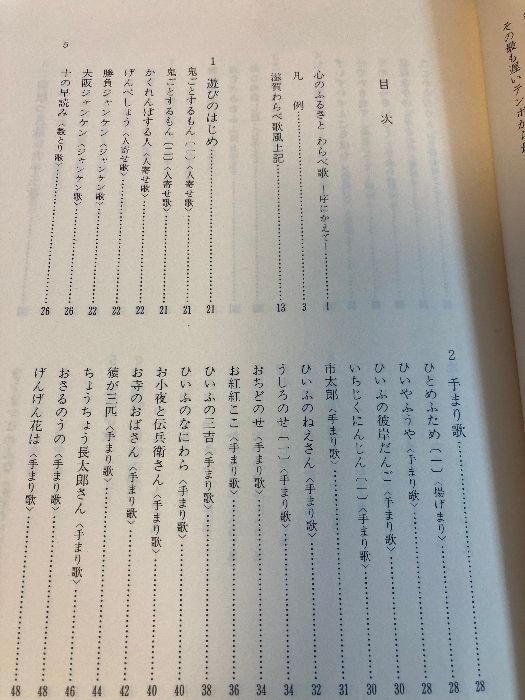 目次
心のふるさと わらべ歌 ―序にかえて― 1
凡例 3
滋賀わらべ歌風土記 13
1 遊びのはじめ 21
鬼ごとするもん(一)〈人寄せ歌〉 21
鬼ごとするもん(二)〈人寄せ歌〉 21
かくれんぼする人〈人寄せ歌〉 22
げんぺしょう〈人寄せ歌〉 22
勝負ジャンケン〈ジャンケン歌〉 22
大阪ジャンケン〈ジャンケン歌〉 26
十の早読み〈数とり歌〉 26
5
2 手まり歌 28
ひとめふため(一)〈揚げまり〉 28
ひいやふうや〈手まり歌〉 28
ひいふの彼岸だんご〈手まり歌〉 30
いちじくにんじん(一)〈手まり歌〉 30
市太郎〈手まり歌〉 31
ひいふのねえさん〈手まり歌〉 32
うしろのせ(一)〈手まり歌〉 34
おちどのせ〈手まり歌〉 34
お紅紅ここ〈手まり歌〉 36
ひいふの三吉〈手まり歌〉 38
ひいふのなにわら〈手まり歌〉 40
お小夜と伝兵衛さん〈手まり歌〉 40
お寺のおばさん〈手まり歌〉 42
猿が三匹〈手まり歌〉 44
ちょうちょう長太郎さん〈手まり歌〉 44
おさるのうの〈手まり歌〉 46
げんげん花は〈手まり歌〉 48
48